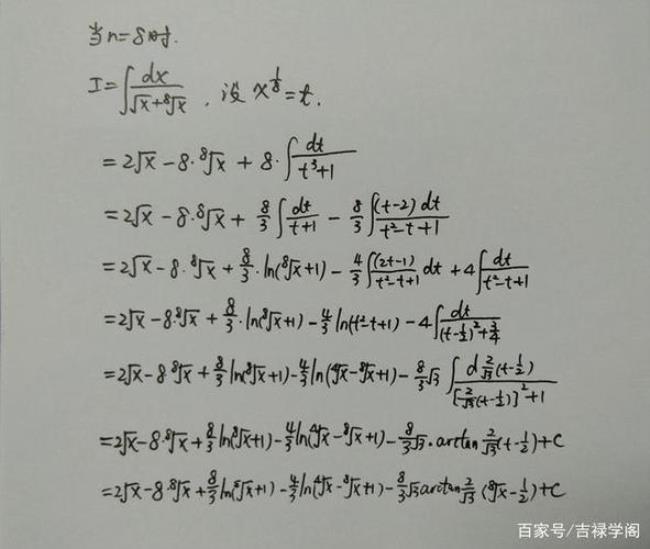 当n=8时.
I=∫dx/(√x+⁸√x) , 设 x^(1/8)=t.
=2√x-8·⁸√x+8·∫dt/(t³+1)
=2√x-8·⁸√x+8/3∫dt/(t+1)-8/3∫(t-2)dt/(t²-t+1)
=2√x-8·⁸√x+8/3·ln(⁸√x+1)-4/3∫(2t-1)/(t²-t+1)dt+4∫dt/(t²-t+1)
=2√x-8·⁸√x+8/3·ln(⁸√x+1)-4/3ln(t²-t+1)-4∫dt/((t-1/2)²+3/4)
=2√x-8·⁸√x+8/3ln(⁸√x+1)-4/3ln(⁴√x-⁸√x+1)-8/3√3∫d2/√3(t-1/2)/([2/√3(t-1/2)]²+1)
=2√x-8·⁸√x+8/3ln(⁸√x+1)-4/3ln(⁴√x-⁸√x+1)-8/3√3·arctan2/√3(t-1/2)+C
=2√x-8·⁸√x+8/3ln(⁸√x+1)-4/3ln(⁴√x-⁸√x+1)-8/3√3arctan2/√3(⁸√x-1/2)+C
百家号/吉禄学阁